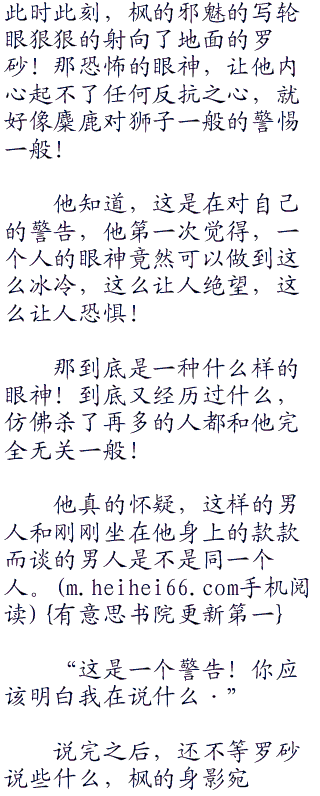 此时此刻，枫的邪魅的写轮
眼狠狠的射向了地面的罗
砂！那恐怖的眼神，让他内
心起不了任何反抗之心，就
好像麋鹿对狮子一般的警惕
一般！
他知道，这是在对自己
的警告，他第一次觉得，一
个人的眼神竟然可以做到这
么冰冷，这么让人绝望，这
么让人恐惧！
那到底是一种什么样的
眼神！到底又经历过什么，
仿佛杀了再多的人都和他完
全无关一般！
他真的怀疑，这样的男
人和刚刚坐在他身上的款款
而谈的男人是不是同一个
人。(m.heihei66.com手机阅
读){有意思书院更新第一}
“这是一个警告！你应
该明白我在说什么·”
说完之后，还不等罗砂
说些什么，枫的身影宛